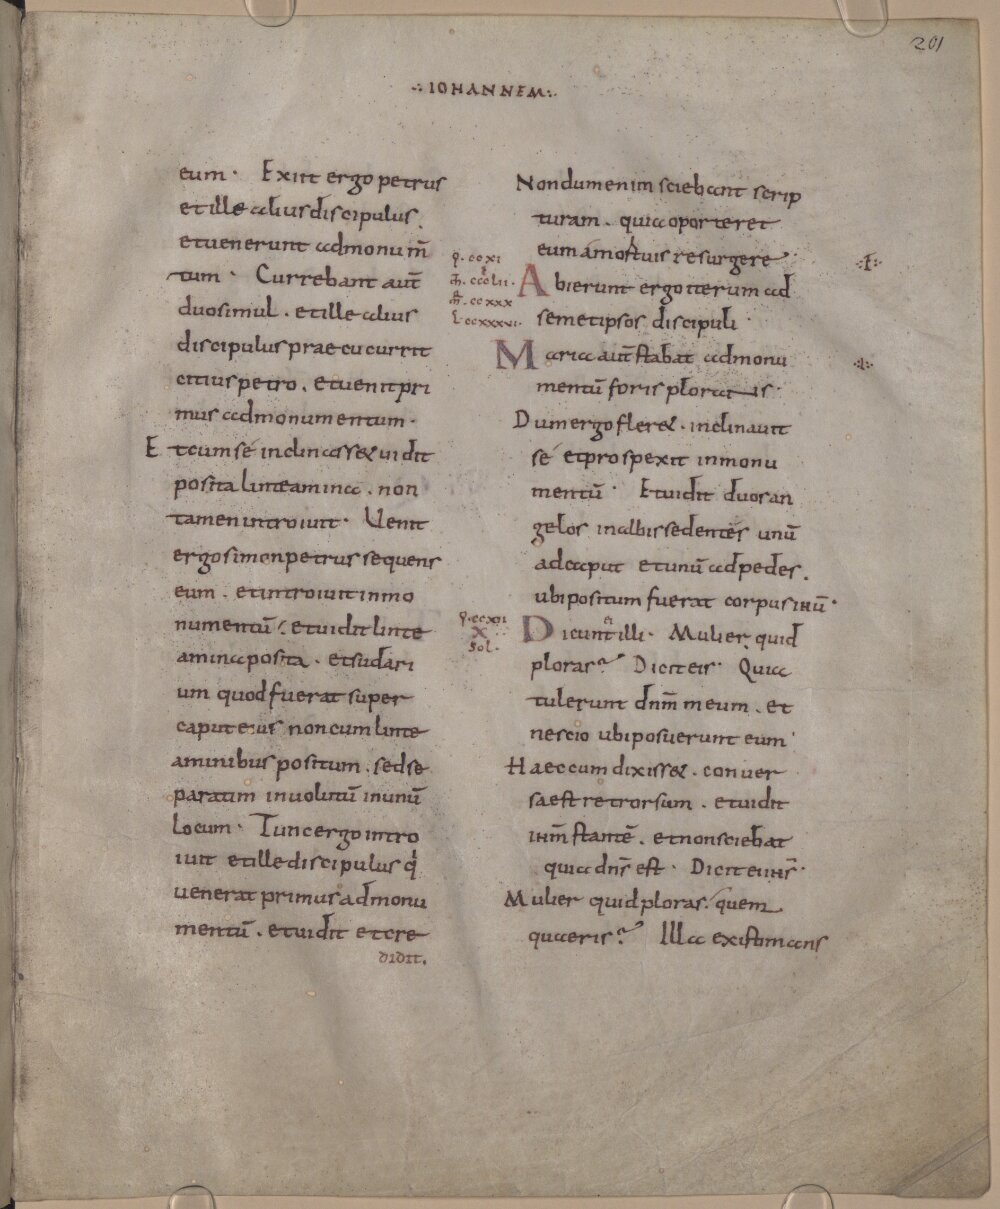 201
·:IOHANNEM:·
eum · Exiit ergo petrus
et ille alius discipulus.
et uenerunt ad monum̄
tum · Currebant aut̄
duo simul . et ille alius
discipulus praecucurrit
citius petro . et uenit pri
mus ad monumentum ·
Et cum sé inclinass& uidit
posita linteamina . non
tamen introiuit · Uenit
ergo simon petrus sequens
eum . et introiuit in mo
numentū . et uidit linte
amina posita . et sudari
um quod fuerat super
caput eius non cum linte
aminibus positum . sed se
paratim inuolutū in unū
locum · Tunc ergo intro
iuit et ille discipulus q
uenerat primus ad monu
mentū . et uidit et cre
didit.
Nondum enim sciebant scrip
turam . quia oporteret
eum á mortuis resurgere ·
·:I:·
Abierunt ergo iterum ad
semetipsos discipuli ·
Maria aut̄ stabat ad monu
mentū foris plorans ·
Dum ergo fler& . inclinauit
sé et prospexit in monu
mentū · Et uidit duos an
gelos in albis sedentes unū
ad caput et unū ad pedes .
ubi positum fuerat corpus ihū ·
X
sol.
Dicunt illi · Mulier quid
ploras? Dicit eis · Quia
tulerunt dnm̄ meum . et
nescio ubi posuerunt eum ·
Haec cum dixiss& . conuer
sa est retrorsum . et uidit
ihm̄ stantē . et non sciebat
quia dns̄ est · Dicit ei ihs̄ ·
Mulier quid ploras . quem
quaeris? Illa existimans